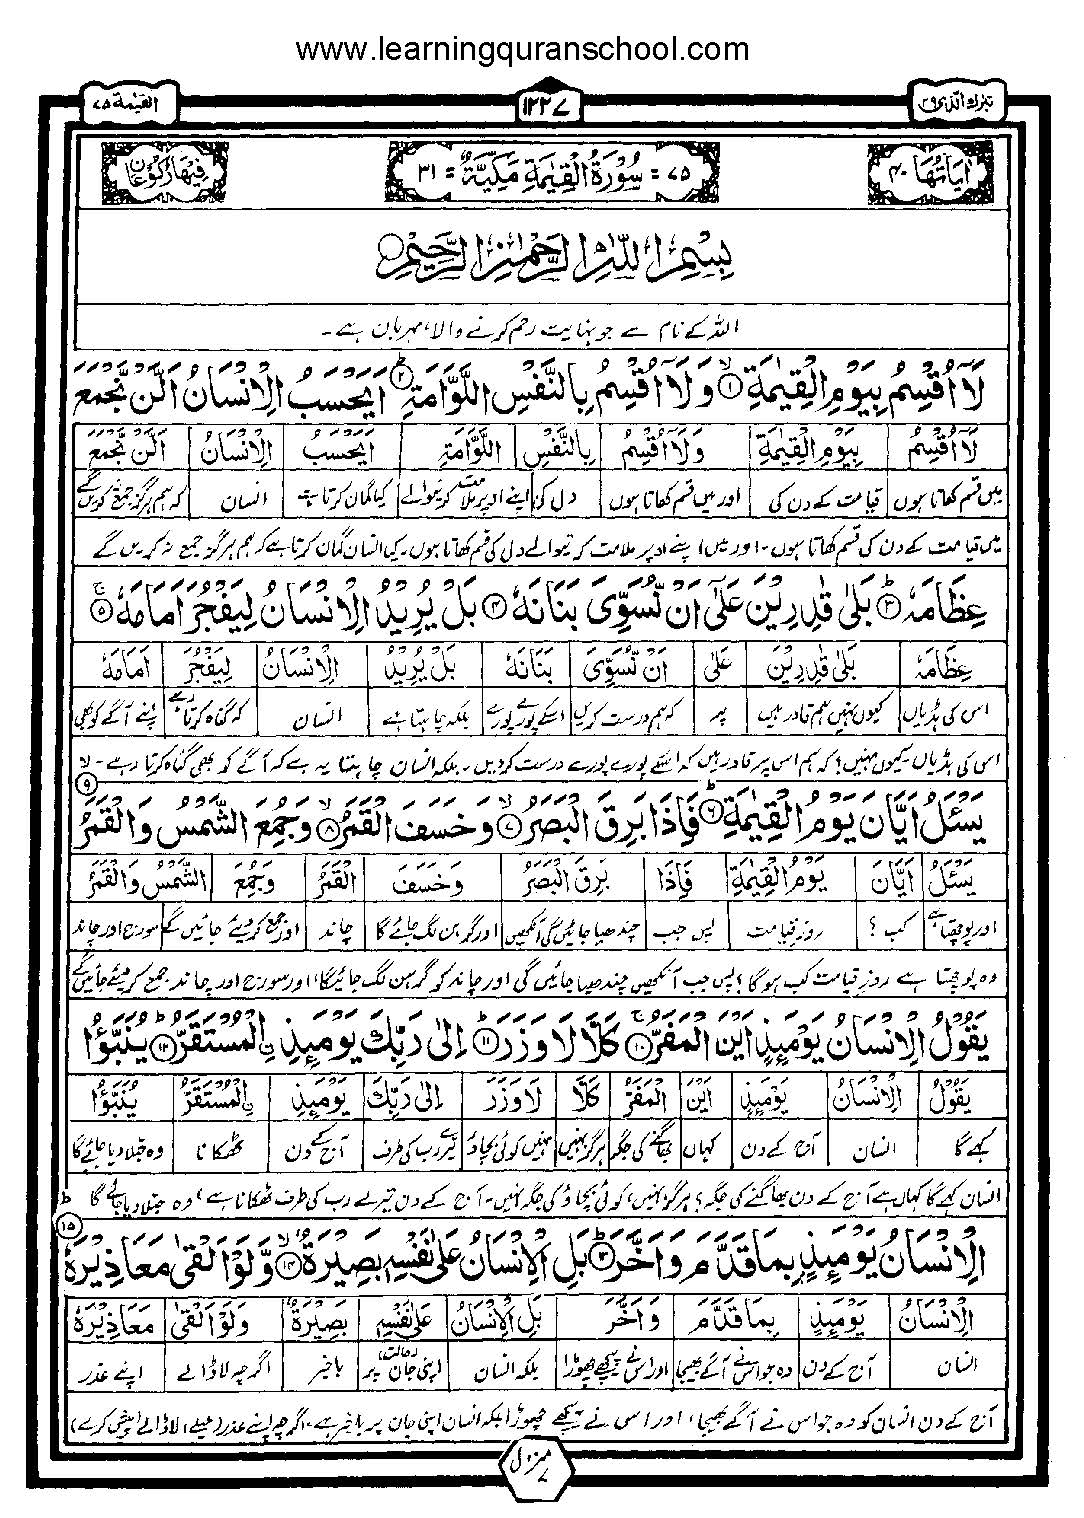 www.learningquranschool.com
تبٰرك الّذى ٢٩
١٢٢٧
القيٰمة ٧٥
اٰيَاتُهَا ٤٠
٧٥ = سُوْرَةُ الْقِيٰمَةِ مَكِّيَّةٌ = ٣١
فِيْهَا رُكُوْعَانِ
بِسْمِ اللّٰهِ الرَّحْمٰنِ الرَّحِيْمِ
اللہ کے نام سے جو نہایت رحم کرنے والا، مہربان ہے۔
لَآ اُقْسِمُ بِيَوْمِ الْقِيٰمَةِ ۙ﴿١﴾ وَلَآ اُقْسِمُ بِالنَّفْسِ اللَّوَّامَةِ ؕ﴿٢﴾ اَيَحْسَبُ الْاِنْسَانُ اَلَّنْ نَّجْمَعَ
لَآ اُقْسِمُ بِيَوْمِ الْقِيٰمَةِ وَلَآ اُقْسِمُ بِالنَّفْسِ اللَّوَّامَةِ اَيَحْسَبُ الْاِنْسَانُ اَلَّنْ نَّجْمَعَ
میں قسم کھاتا ہوں قیامت کے دن کی اور میں قسم کھاتا ہوں دل کی اپنے اوپر ملامت کرنیوالے کیا گمان کرتا ہے انسان کہ ہم ہرگز جمع نہ کریں گے
میں قیامت کے دن کی قسم کھاتا ہوں۔ اور میں اپنے اوپر ملامت کرنیوالے دل کی قسم کھاتا ہوں۔ کیا انسان گمان کرتا ہے کہ ہم ہرگز جمع نہ کریں گے
عِظَامَهٗ ؕ﴿٣﴾ بَلٰى قٰدِرِيْنَ عَلٰٓى اَنْ نُّسَوِّىَ بَنَانَهٗ ﴿٤﴾ بَلْ يُرِيْدُ الْاِنْسَانُ لِيَفْجُرَ اَمَامَهٗ ۚ﴿٥﴾
عِظَامَهٗ بَلٰى قٰدِرِيْنَ عَلٰٓى اَنْ نُّسَوِّىَ بَنَانَهٗ بَلْ يُرِيْدُ الْاِنْسَانُ لِيَفْجُرَ اَمَامَهٗ
اس کی ہڈیاں کیوں نہیں ہم قادر ہیں پر کہ ہم درست کردیں اسکے پورے پورے بلکہ چاہتا ہے انسان کہ گناہ کرتا رہے اپنے آگے کو بھی
اس کی ہڈیاں۔ کیوں نہیں؟ کہ ہم اس پر قادر ہیں کہ اسکے پورے پورے درست کردیں۔ بلکہ انسان چاہتا یہ ہے کہ آگے کو بھی گناہ کرتا رہے۔
يَسْـَٔلُ اَيَّانَ يَوْمُ الْقِيٰمَةِ ؕ﴿٦﴾ فَاِذَا بَرِقَ الْبَصَرُ ۙ﴿٧﴾ وَخَسَفَ الْقَمَرُ ۙ﴿٨﴾ وَجُمِعَ الشَّمْسُ وَالْقَمَرُ ۙ﴿٩﴾
يَسْـَٔلُ اَيَّانَ يَوْمُ الْقِيٰمَةِ فَاِذَا بَرِقَ الْبَصَرُ وَخَسَفَ الْقَمَرُ وَجُمِعَ الشَّمْسُ وَالْقَمَرُ
اور پوچھتا ہے کب؟ روزِ قیامت پس جب چندھیا جائیں گی آنکھیں اور گرہن لگ جائے گا چاند اور جمع کر دیئے جائیں گے سورج اور چاند
وہ پوچھتا ہے روزِ قیامت کب ہوگا؟ پس جب آنکھیں چندھیا جائیں گی اور چاند کو گرہن لگ جائیگا، اور سورج اور چاند جمع کر دیئے جائیں گے
يَقُوْلُ الْاِنْسَانُ يَوْمَئِذٍ اَيْنَ الْمَفَرُّ ۚ﴿١٠﴾ كَلَّا لَا وَزَرَ ؕ﴿١١﴾ اِلٰى رَبِّكَ يَوْمَئِذِ ِۨالْمُسْتَقَرُّ ؕ﴿١٢﴾ يُنَبَّؤُا
يَقُوْلُ الْاِنْسَانُ يَوْمَئِذٍ اَيْنَ الْمَفَرُّ كَلَّا لَا وَزَرَ اِلٰى رَبِّكَ يَوْمَئِذِ ِۨالْمُسْتَقَرُّ يُنَبَّؤُا
کہے گا انسان آج کے دن کہاں بھاگنے کی جگہ ہرگز نہیں نہیں کوئی بچاؤ تیرے رب کی طرف آج کے دن ٹھکانا وہ جتلا دیا جائے گا
انسان کہے گا کہاں ہے آج کے دن بھاگنے کی جگہ؟ ہرگز نہیں، کوئی بچاؤ کی جگہ نہیں۔ آج کے دن تیرے رب کی طرف ٹھکانا ہے، وہ جتلا دیا جائے گا
الْاِنْسَانُ يَوْمَئِذٍۢ بِمَا قَدَّمَ وَاَخَّرَ ؕ﴿١٣﴾ بَلِ الْاِنْسَانُ عَلٰى نَفْسِهٖ بَصِيْرَةٌ ۙ﴿١٤﴾ وَّلَوْ اَلْقٰى مَعَاذِيْرَهٗ ؕ﴿١٥﴾
الْاِنْسَانُ يَوْمَئِذٍ بِمَا قَدَّمَ وَاَخَّرَ بَلِ الْاِنْسَانُ عَلٰى نَفْسِهٖ بَصِيْرَةٌ وَلَوْ اَلْقٰى مَعَاذِيْرَهٗ
انسان آج کے دن وہ جو اس نے آگے بھیجا اور اس نے پیچھے چھوڑا بلکہ انسان اپنی جان (حالت) پر باخبر اگرچہ لا ڈالے اپنے عذر
آج کے دن انسان کو وہ جو اس نے آگے بھیجا، اور اس نے پیچھے چھوڑا بلکہ انسان اپنی جان پر باخبر ہے۔ اگرچہ اپنے عذر (حیلے) لا ڈالے (پیش کرے)
منزل ٧